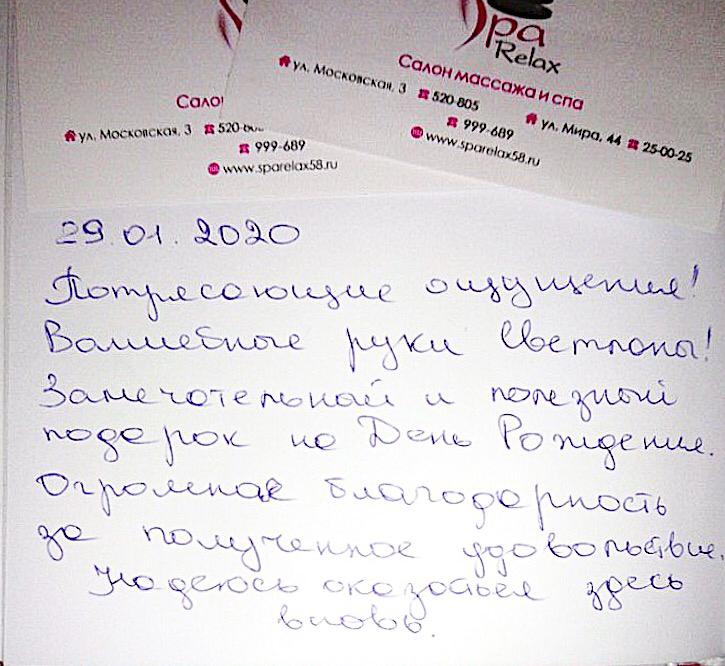 Spa
Relax
Салон массажа и спа
ул. Московская, 3 520-805 ул. Мира, 44 25-00-25
999-689
www.sparelax58.ru
Сало
ул. Московская, 3 520-80
999-689
www.sparelax58.ru
29.01.2020
Потрясающие ощущения!
Волшебные руки Светланы!
Замечательный и полезный
подарок на День Рождения.
Огромная благодарность
за полученное удовольствие.
Надеюсь оказаться здесь
вновь.